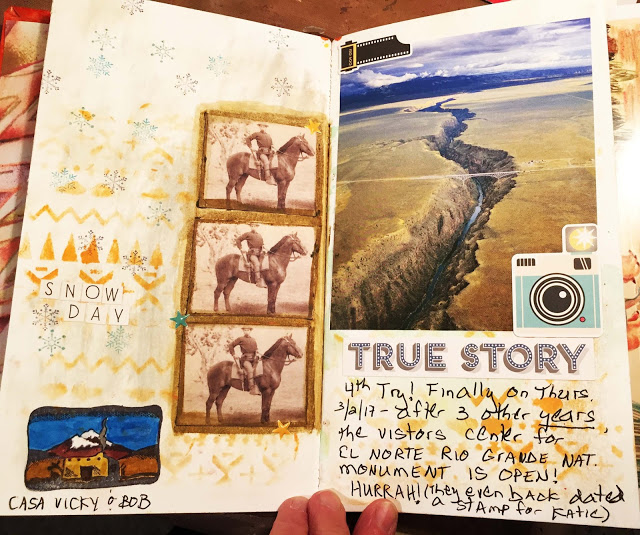 SNOW
DAY
CASA VICKY & BOB
TRUE STORY
4th Try! Finally on Thurs.
3/2/17 - after 3 other years,
the vistors center for
EL NORTE RIO GRANDE NAT.
MONUMENT IS OPEN!
HURRAH! (They even back dated
a STAMP for KATIE)